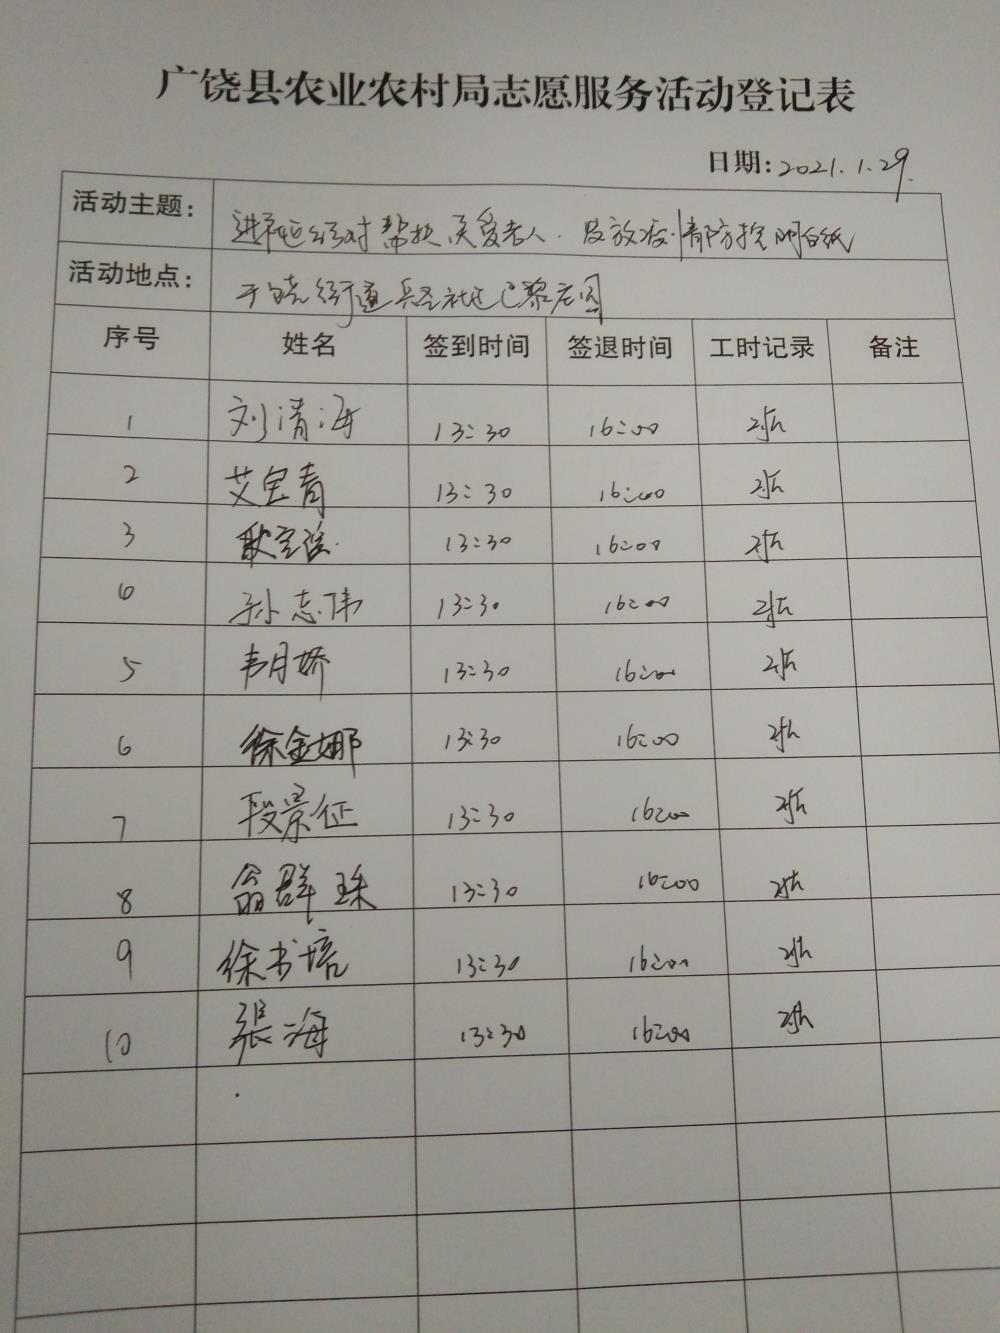 广饶县农业农村局志愿服务活动登记表
日期: 2021.1.29.
活动主题: 进社区结对帮扶关爱老人. 发放疫情防控明白纸
活动地点: 广饶街道兵圣社区巴黎庄园
序号 姓名 签到时间 签退时间 工时记录 备注
1 刘清海 13:30 16:00 2.5h
2 艾宝青 13:30 16:00 2.5h
3 13:30 16:00 2.5h
6 孙志伟 13:30 16:00 2.5h
5 韦月娇 13:30 16:00 2.5h
6 徐金娜 13:30 16:00 2.5h
7 段景征 13:30 16:00 2.5h
8 翕群珠 13:30 16:00 2.5h
9 徐书培 13:30 16:00 2.5h
10 張海 13:30 16:00 2.5h